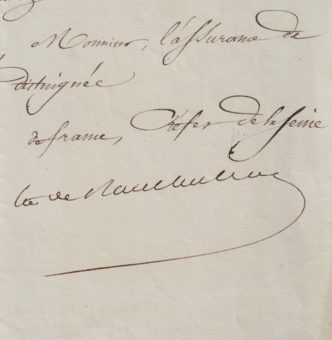 Monsieur, l'assurance de
distinguée
de france, Préfet de la Seine
Cte de Rambuteau